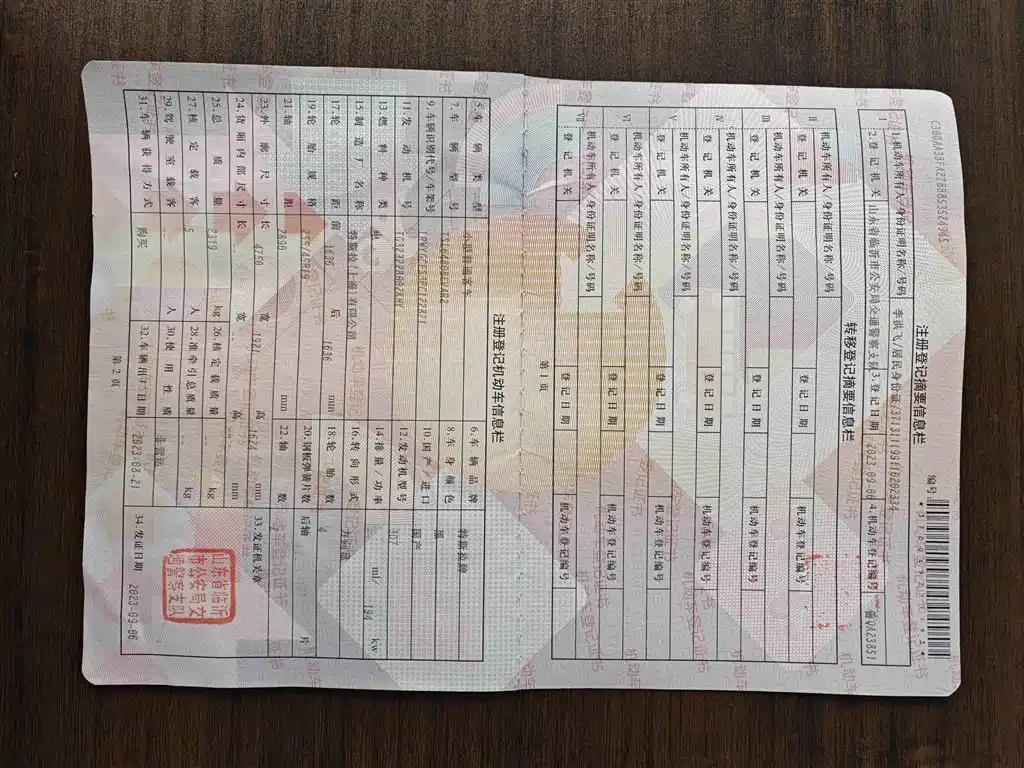 注册登记摘要信息栏
编号:
Ⅰ 1.机动车所有人/身份证明名称/号码 李洪飞/居民身份证/371311199110202334
2.登记机关 山东省临沂市公安局交通警察支队 3.登记日期 2023-09-06 4.机动车登记编号 鲁QA23851
转移登记摘要信息栏
Ⅱ 机动车所有人/身份证明名称/号码
登记机关 登记日期 机动车登记编号
Ⅲ 机动车所有人/身份证明名称/号码
登记机关 登记日期 机动车登记编号
Ⅳ 机动车所有人/身份证明名称/号码
登记机关 登记日期 机动车登记编号
Ⅴ 机动车所有人/身份证明名称/号码
登记机关 登记日期 机动车登记编号
Ⅵ 机动车所有人/身份证明名称/号码
登记机关 登记日期 机动车登记编号
Ⅶ 机动车所有人/身份证明名称/号码
登记机关 登记日期 机动车登记编号
第1页
注册登记机动车信息栏
5.车辆类型 小型普通客车 6.车辆品牌 特斯拉牌
7.车辆型号 8.车身颜色
9.车辆识别代号/车架号 10.国产/进口 国产
11.发动机号 12.发动机型号 3D7
13.燃料种类 电 14.排量/功率 ml/ 194 kw
15.制造厂名称 特斯拉(上海)有限公司 16.转向形式 方向盘
17.轮距 前 1636 后 1636 mm 18.轮胎数 4
19.轮胎规格 255/45R19 20.钢板弹簧片数 后轴 片
21.轴距 2890 mm 22.轴数
23.外廓尺寸 长 4750 宽 1921 高 1624 mm 33.发证机关章
24.货厢内部尺寸 长 宽 高 mm
25.总质量 2319 kg 26.核定载质量 kg
27.核定载客 5 人 28.准牵引总质量 kg
29.驾驶室载客 人 30.使用性质 非营运
31.车辆获得方式 购买 32.车辆出厂日期 2023-08-21 34.发证日期 2023-09-06
山东省临沂
市公安局交
通警察支队
第2页